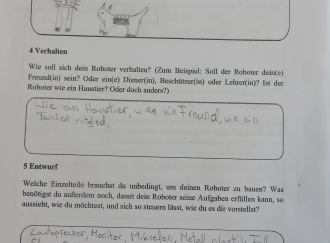 4 Verhalten
Wie soll sich dein Roboter verhalten? (Zum Beispiel: Soll der Roboter dein(e)
Freund(in) sein? Oder ein(e) Diener(in), Beschützer(in) oder Lehrer(in)? Ist der
Roboter wie ein Haustier? Oder doch anders?)
Wie ein Haustier, wie ein Freund, wie ein
Familien mitglied.
5 Entwurf
Welche Einzelteile brauchst du unbedingt, um deinen Roboter zu bauen? Was
benötigst du außerdem noch, damit dein Roboter seine Aufgaben erfüllen kann, so
aussieht, wie du möchtest, und sich so steuern lässt, wie du es dir vorstellst?
Lautsprecher, Monitor, Mikrofon, Metall